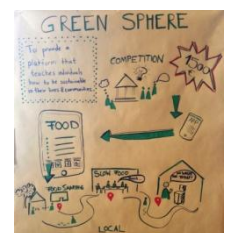 GREEN SPHERE
To provide a
platform that
teaches individuals
how to be sustainable
in their lives & communities
COMPETITION
1500
FOOD
SLOW FOOD
FOOD SHARING
LOCAL